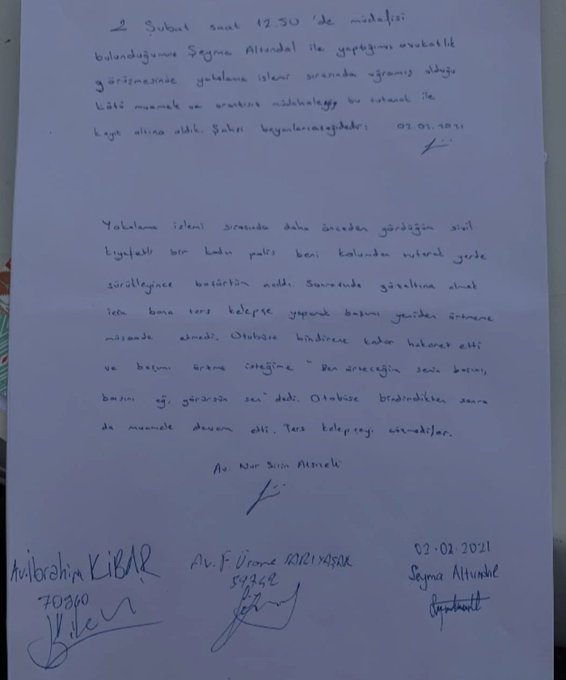 2 Şubat saat 12.50 'de müdafisi
bulunduğumuz Şeyma Altundal ile yaptığımız avukatlık
görüşmesinde yakalama işlemi sırasında uğramış olduğu
kötü muamele ve orantısız müdahaleyi bu tutanak ile
kayıt altına aldık. Şahsi beyanları aşağıdadır: 02.02.2021
Yakalama işlemi sırasında daha önceden gördüğüm sivil
kıyafetli bir kadın polis beni kolumdan tutarak yerde
sürükleyince başörtüm açıldı. Sonrasında gözaltına almak
için bana ters kelepçe yaparak başımı yeniden örtmeme
müsaade etmedi. Otobüse bindirene kadar hakaret etti
ve başımı örtme isteğime " Ben örteceğim senin başını,
başını eğ, görürsün sen" dedi. Otobüse bindirdikten sonra
da muamele devam etti. Ters kelepçeyi çözmediler.
Av. Nur Sirin
Av. İbrahim KİBAR
70960
Av. F. SARIYAŞAR
59762
02.02.2021
Şeyma Altundal